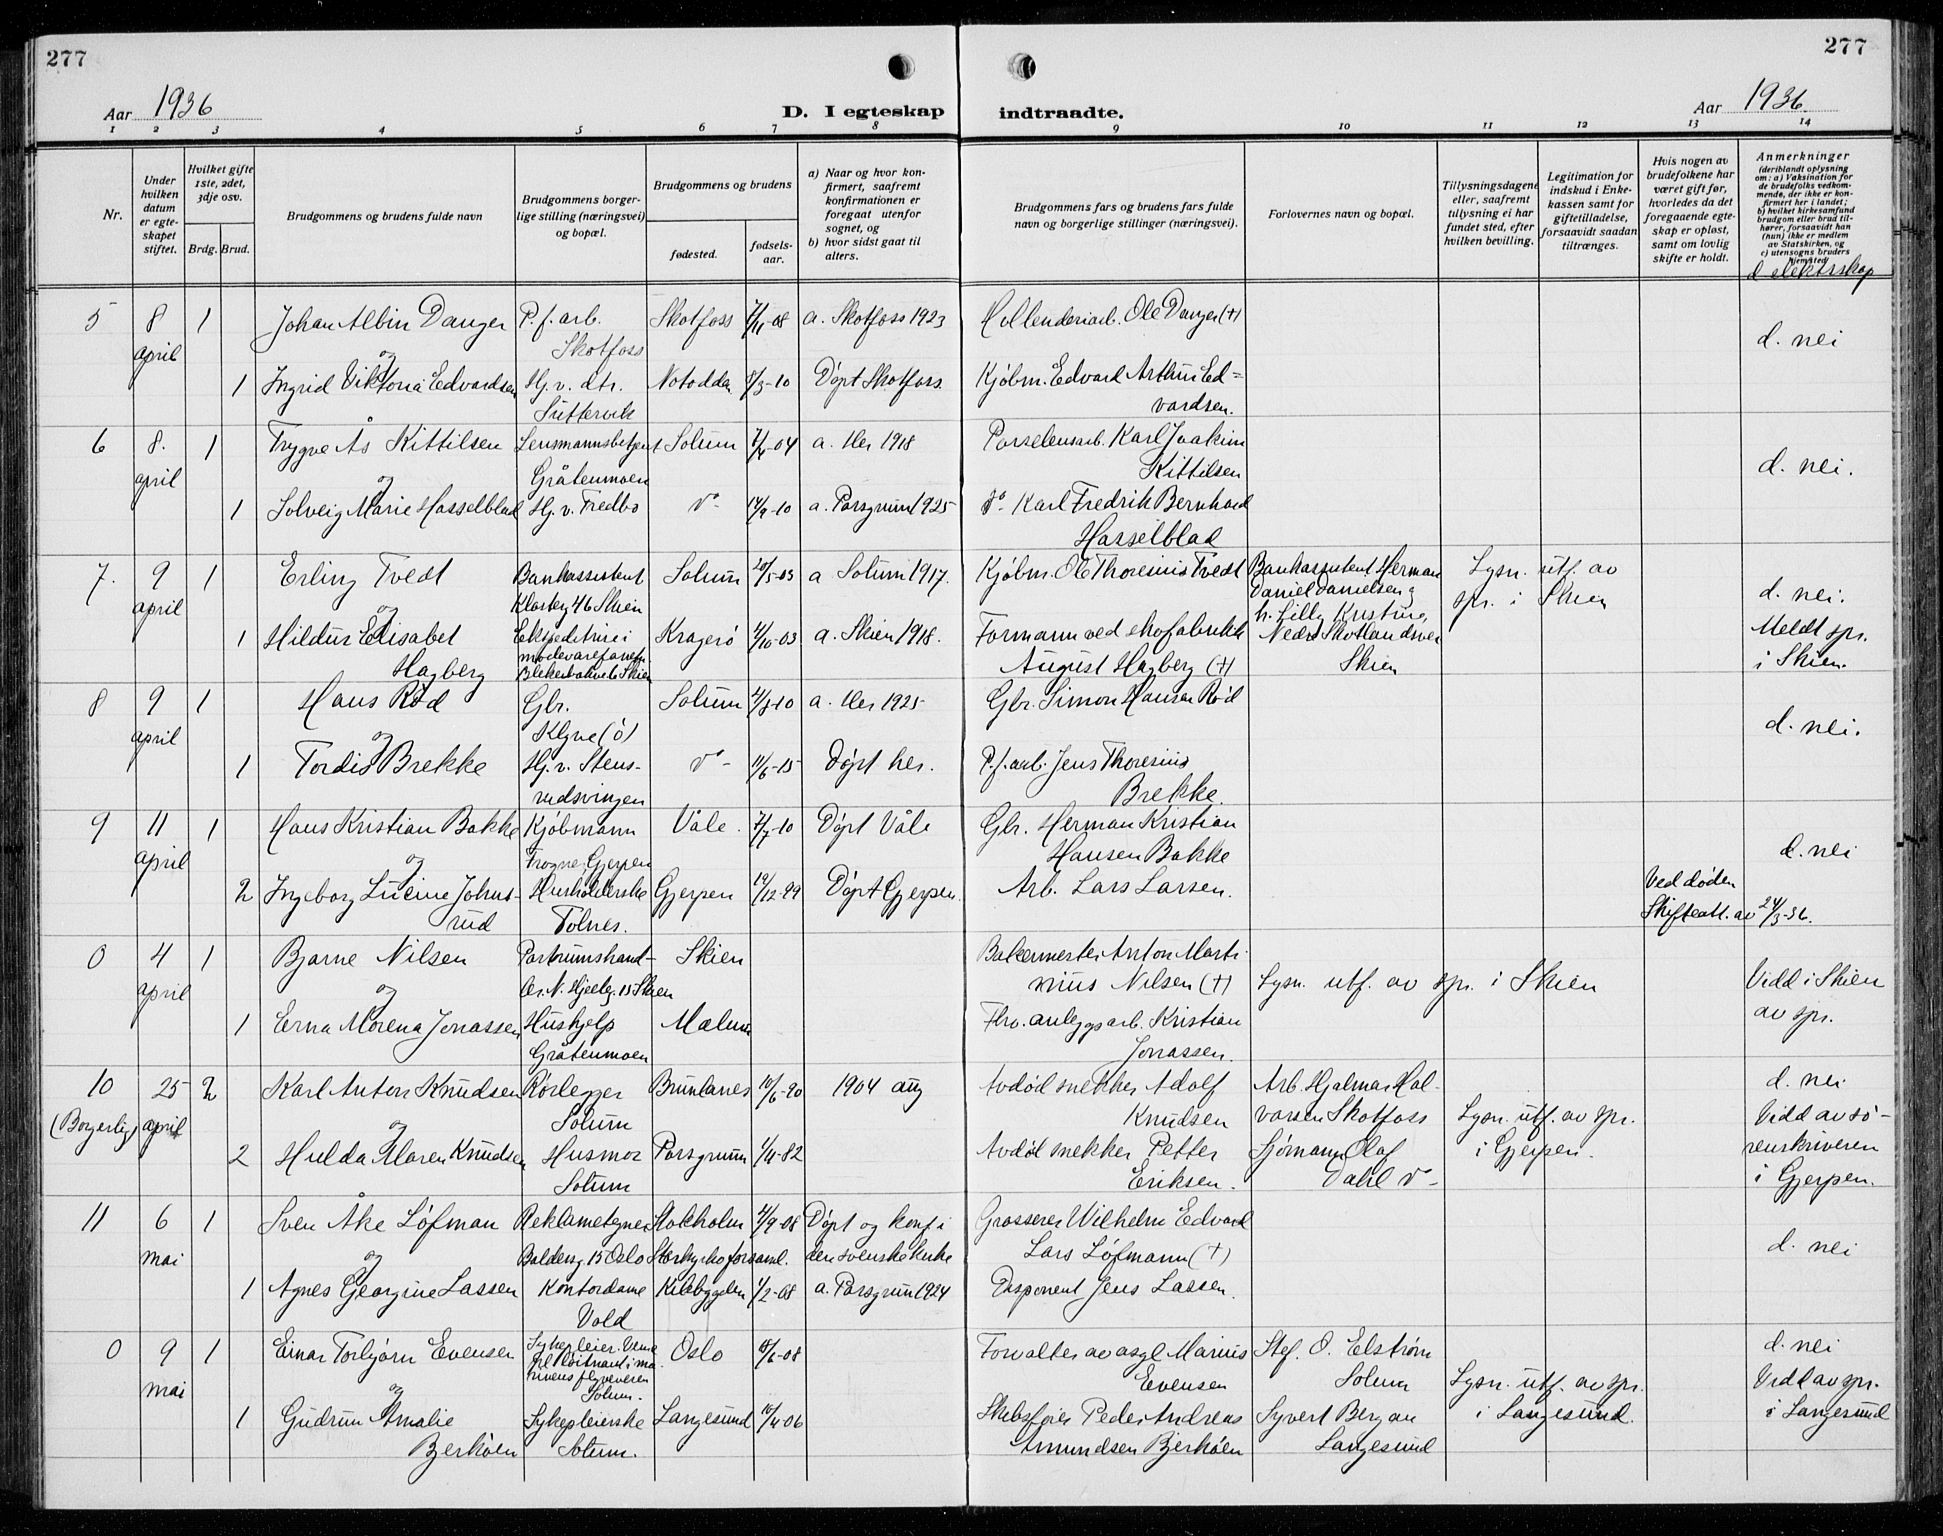 277
277
Aar 1936
D. I egteskap
indtraadte.
Aar 1936.
1 2 3 4 5 6 7 8 9 10 11 12 13 14
Nr.
Under hvilken datum er egte-skapet stiftet.
Hvilket gifte 1ste, 2det, 3dje osv.
Brdg. Brud.
Brudgommens og brudens fulde navn
Brudgommens borger-lige stilling (næringsvei) og bopæl.
Brudgommens og brudens
fødested.
fødsels-aar.
a) Naar og hvor kon-firmert, saafremt konfirmationen er foregaat utenfor sognet, og
b) hvor sidst gaat til alters.
Brudgommens fars og brudens fars fulde navn og borgerlige stillinger (næringsvei).
Forlovernes navn og bopæl.
Tillysningsdagene eller, saafremt tillysning ei har fundet sted, efter hvilken bevilling.
Legitimation for indskud i Enke-kassen samt for giftetilladelse, forsaavidt saadan tiltrænges.
Hvis nogen av brudefolkene har været gift før, hvorledes da det foregaaende egte-skap er opløst, samt om lovlig skifte er holdt.
Anmerkninger
(deriblandt oplysning om: a) Vaksination for de brudefolks vedkom-mende, der ikke er kon-firmert her i landet; b) hvilket kirkesamfund brudgom eller brud til-hører, forsaavidt han (hun) ikke er medlem av Statskirken, og c) utensogns bruders hjemsted)
5 8 1 Johan Albin Danger P. f. arb. Skotfoss 7/11-08 a. Skotfoss 1923 Hollenderiarb. Ole Danger (+)
april og Skotfoss d. nei
1 Ingrid Viktoria Edvardsen Hj. v. dtr. Notodden 8/3-10 Døpt Skotfoss. Kjøbm. Edvard Arthur Ed=
vardsen.
6 8. 1 Trygve Ås Kittilsen Lensmannsbetjent Solum 7/4-04 a. Her 1918 Porselensarb. Karl Joakim
april og Gråtenmoen Kittilsen d. nei.
1 Solveig Marie Hasselblad Hj. v. Fredbo do a. Porsgrunn 1925 do Karl Fredrik Bernhard
Hasselblad
7. 9 1 Erling Tvedt Bankassistent Solum 20/5-03 a Solum 1917. Kjøbm. Ole Thoresius Tvedt Bankassistent Herman Lysn. utf. av
april og Klosterg 46 Skien Daniel Danielsen og spr. i Skien d. nei.
1 Hildur Elisabet Kragerø 4/10-03 a. Skien 1918. Formann ved skofabrikk Meldt spr.
Hagberg August Hagberg (+) Skien i Skien.
8 9 1 Hans Rød Gbr. Solum a. Her 1925 Gbr. Simon Hansen Rød
april og Klyve (ö) d. nei.
1 Tordis Brekke Hj. v. Stens- do - 11/6-15 Døpt her. P. f. arb. Jens Thoresius
rudsvingen Brekke.
9 11 1 Hans Kristian Bakke Kjøbmann Våle. 7/7-10 Døpt Våle Gbr. Herman Kristian
april og Frogner Gjerpen Hansen Bakke d. nei
2 Ingeborg Lucine Johns- Husholderske Gjerpen 19/12-99 Døpt Gjerpen. Arb. Lars Larsen. Ved døden
rud Tolnes. Skifteatt. av 24/3-36.
0 4 1 Bjarne Nilsen Skien Bakermester Anton Marti-
april og nius Nilsen (+) Lysn. utf. av spr. i Skien Vidd i Skien
1 Erna Morena Jonassen Hushjelp Mælum Fhv. anleggsarb. Kristian av spr.
Gråtenmoen Jonassen.
10 25 2 Karl Anton Knudsen Rørlegger Brunlanes 10/6-90 1904 aug Avdød snekker Adolf Arb. Hjalmar Hal- d. nei
(Borgerlig) april og Solum Knudsen vorsen Skotfoss Lysn. utf. av spr. Vidd av sø-
2 Hulda Maren Knudsen Husmor Porsgrunn 1/11-82 Avdød snekker Petter Sjømann Olaf i Gjerpen. renskriveren
Solum Eriksen. Dahl do - i Gjerpen.
11 6 1 Sven Åke Löfman Reklametegner Stokholm 4/9-08 Døpt og konf i Grosserer Wilhelm Edvard
mai og Balders. 15 Oslo den svenske kirke Lars Löfmann (+) d. nei
1 Agnes Georgine Lassen Kontordame Kilebygden 1/2-08 a. Porsgrunn 1924 Disponent Jens Lassen.
Vold
0 9 1 Einar Torbjørn Evensen Oslo 18/6-08 Forvalter av asyl Marius Stef. O. Elstrøm d. nei
mai og Solum. Evensen Solum Lysn. utf. av spr. Vidd av spr.
1 Gudrun Amalie Sykepleierske Langesund 10/4-06 Skibsfører Peder Andreas Syvert Bergan i Langesund. i Langesund
Bjerkøen Solum. Amundsen Bjerköen Langesund